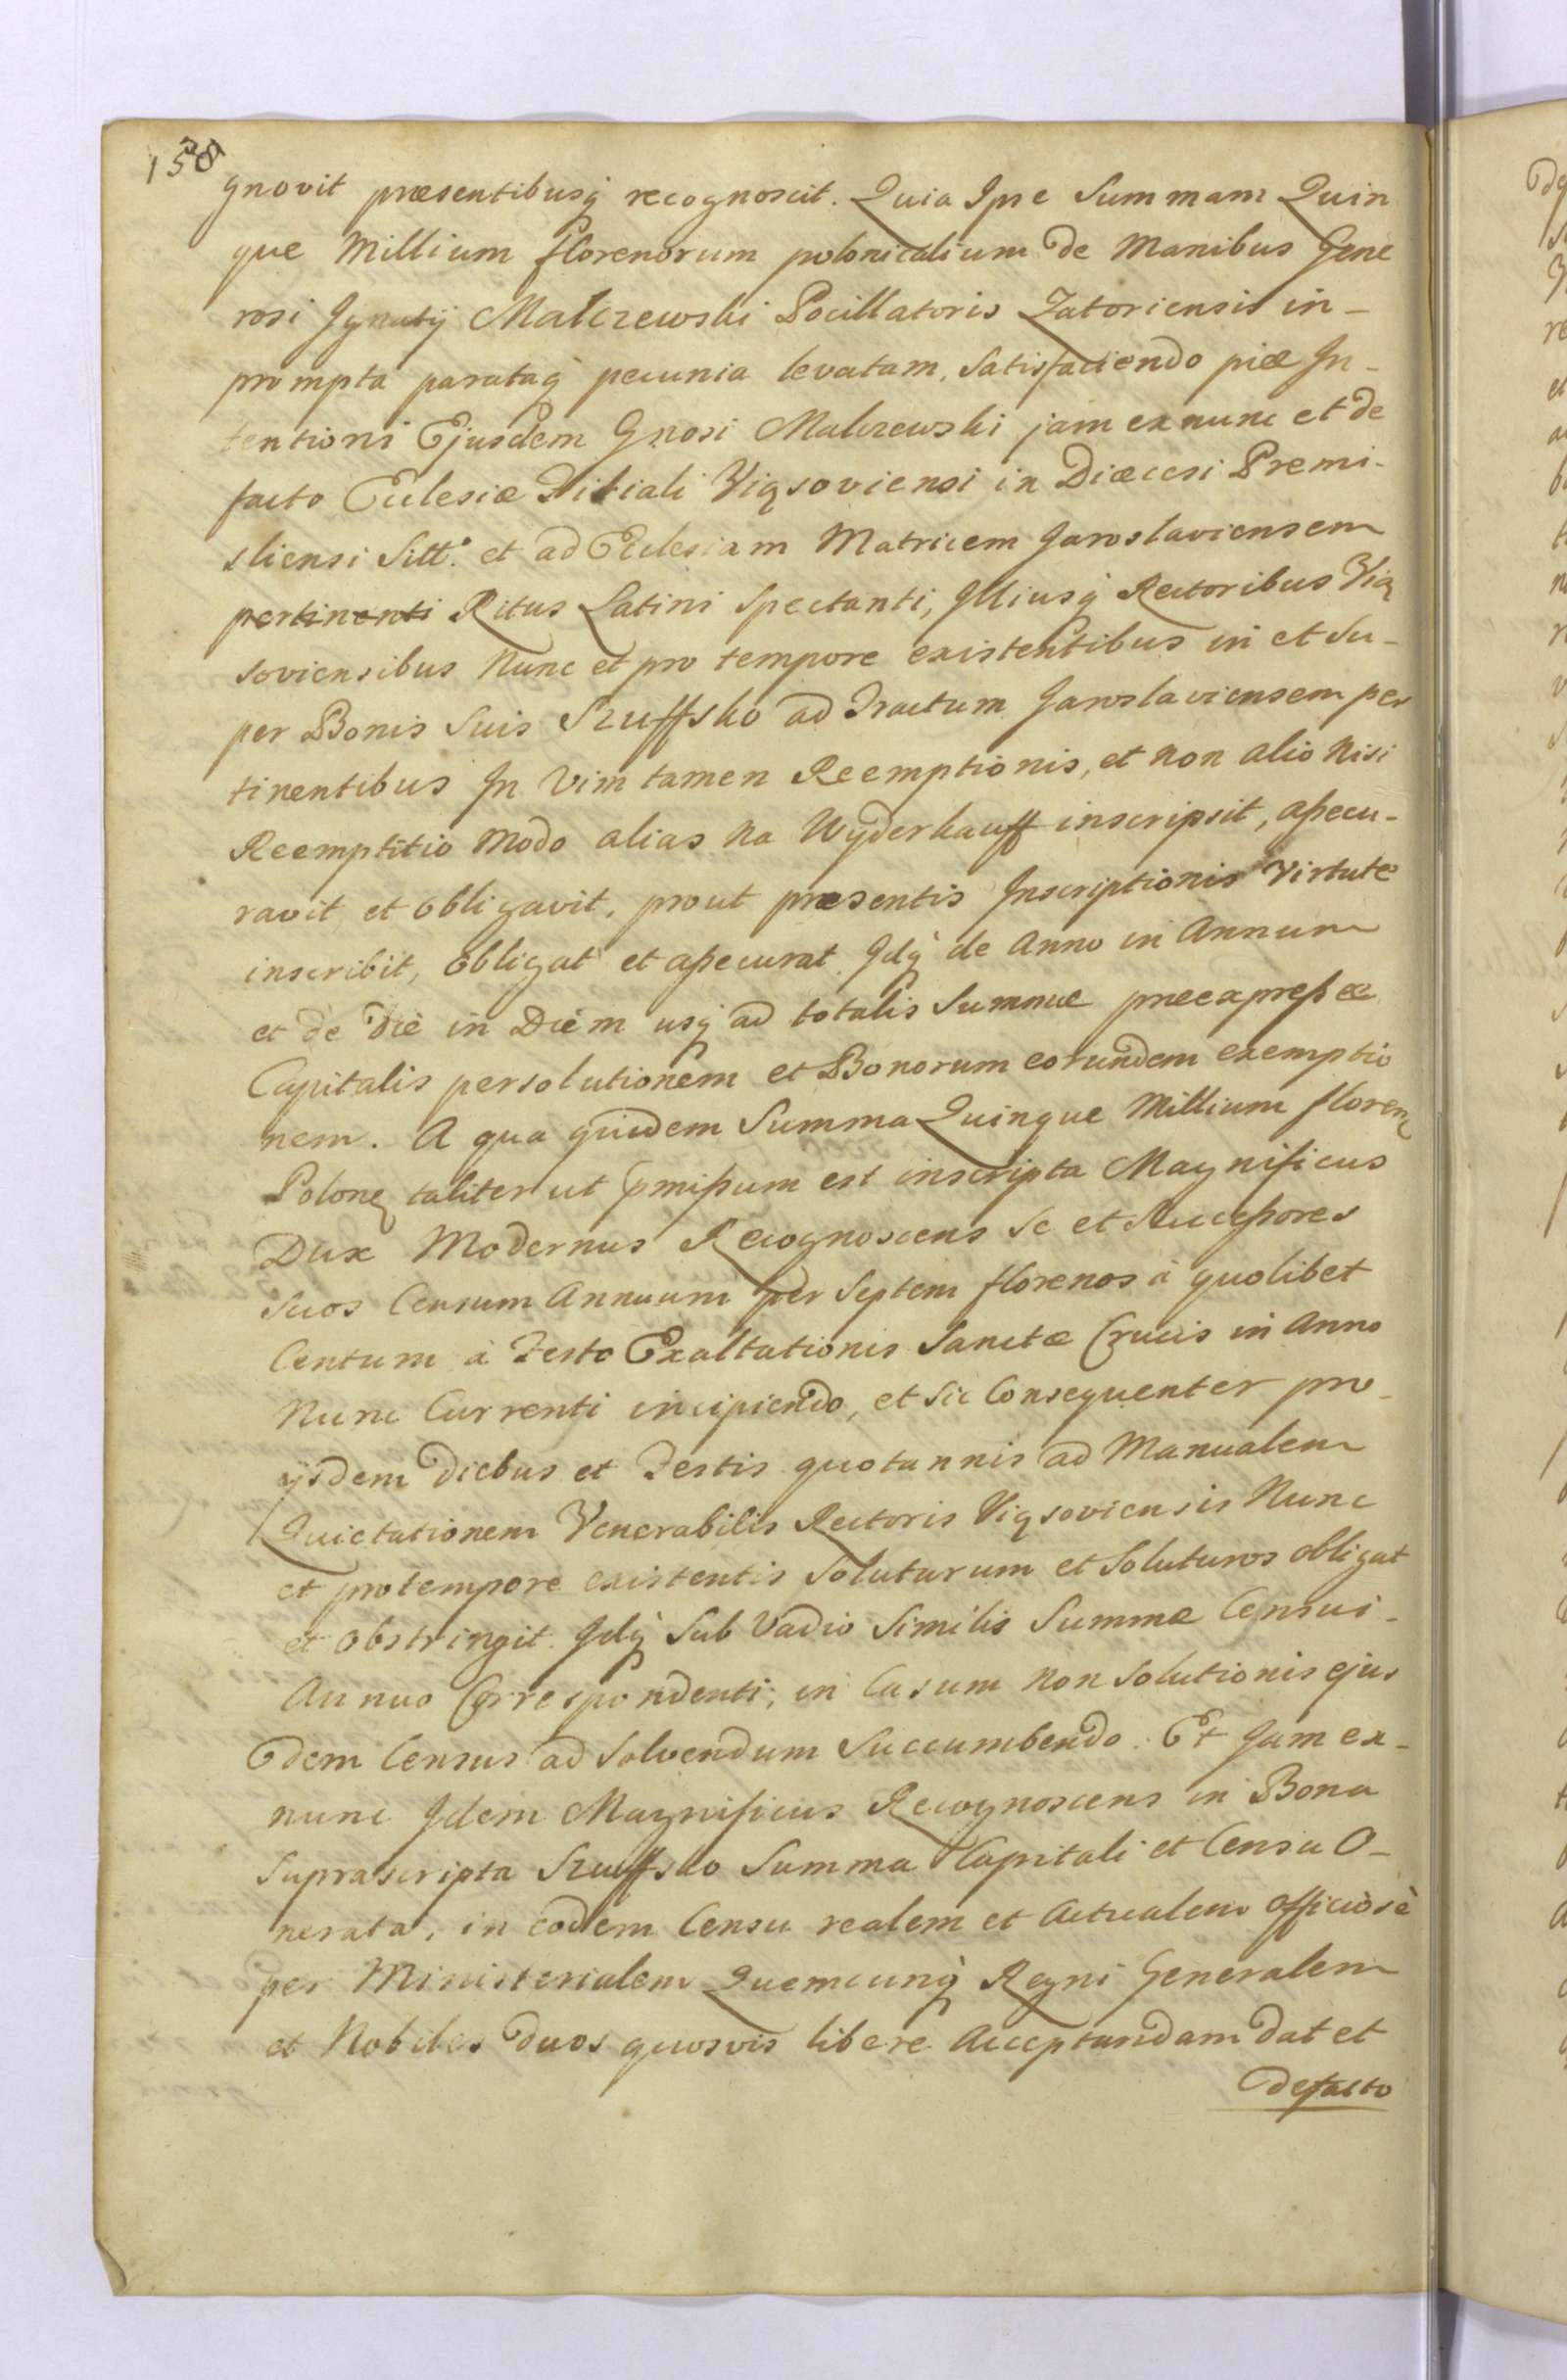 158
gnovit præsentibusq recognoscit. Quia Ipse Summam Quin
que Millium florenorum polonicalium de Manibus Gene
rosi Ignatij Malczewski Pocillatoris Zatoriensis in-
prompta parataq pecunia levatam, Satisfaciendo piæ In-
tentioni Ejusdem Gnosi Malczewski jam ex nunc et de
facto Ecclesiæ Filiali Viązoviensi in Diæcesi Premi-
sliensi Sitt. et ad Ecclesiam Matricem Jaroslaviensem
pertinenti Ritus Latini Spectanti, Illiusq Rectoribus Vią
soviensibus Nunc et pro tempore existentibus in et Su-
per Bonis Suis Szuffsko ad Tractum Jaroslaviensem per
tinentibus In Vim tamen Reemptionis, et non alio Nisi
Reemptitio Modo alias Na Wyderkauff inscripsit, assecu-
ravit et obligavit, prout præsentis Inscriptionis Virtute
inscribit, obligat et assecurat Idq de Anno in Annum
et de Die in Diem usq ad totalis Summæ præexpressæ
Capitalis persolutionem et Bonorum eorundem exemptio
nem. A qua quidem Summa Quinque Millium floren
Polon taliter ut pmissum est inscripta Magnificus
Dux Modernus Recognoscens Se et Successores
Suos Censum Annuum per Septem florenos à quolibet
Centum à Festo Exaltationis Sanctæ Crucis in Anno
Nunc Currenti incipiendo, et Sic Consequenter pro-
ijsdem Diebus et Festis quotannis ad Manualem
Quietationem Venerabilis Rectoris Viąsoviensis Nunc
et pro tempore existentis Soluturum et Soluturos obligat
et obstringit. Idq Sub Vadio Similis Summæ Censui-
Annuo Correspondenti, in Casum Non Solutionis ejus
dem Census ad Solvendum Succumbendo. Et Jam ex-
nunc Idem Magnificus Recognoscens in Bona
Suprascripta Szuffsko Summa Capitali et Censu O-
nerata, in eodem Censu realem et Actualem officiosè
per Ministerialem Quemcunq Regni Generalem
et Nobiles Duos quosvis libere Acceptandam Dat et
Defacto